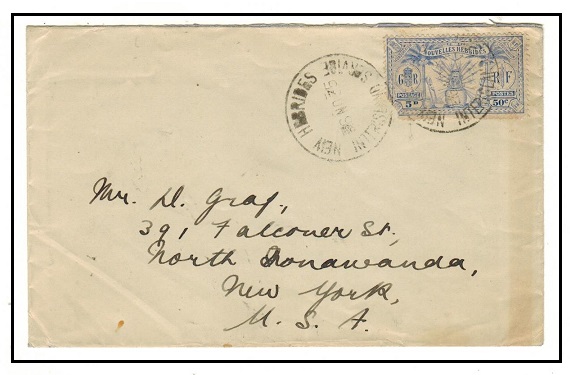 NOUVELLES HÉBRIDES
G R R F
POSTAGE POSTES
5D 50C
NEW HEBRIDES
Mr. D. Graf,
391 Falconer St.,
North Tonawanda,
New York,
U. S. A.